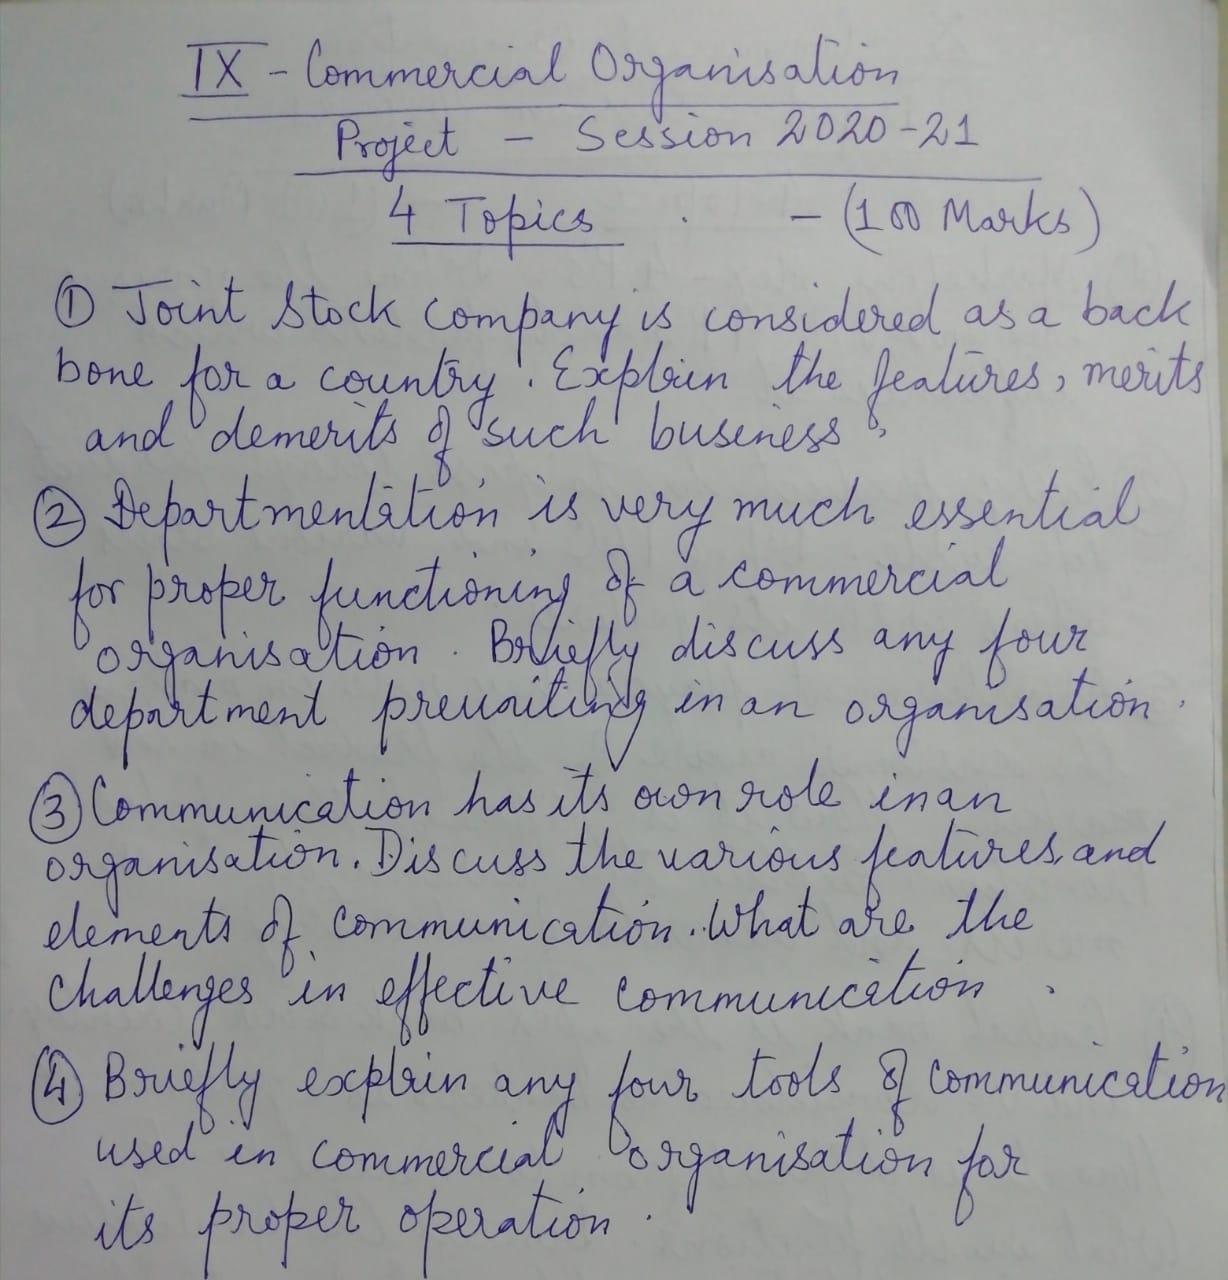 IX - Commercial Organisation
Project - Session 2020-21
4 Topics - (100 Marks)
① Joint Stock Company is considered as a back
bone for a country. Explain the features, merits
and demerits of such business.
② Departmentation is very much essential
for proper functioning of a commercial
organisation. Briefly discuss any four
department prevailing in an organisation.
③ Communication has its own role in an
organisation. Discuss the various features and
elements of communication. What are the
challenges in effective communication.
④ Briefly explain any four tools of communication
used in commercial organisation for
its proper operation.